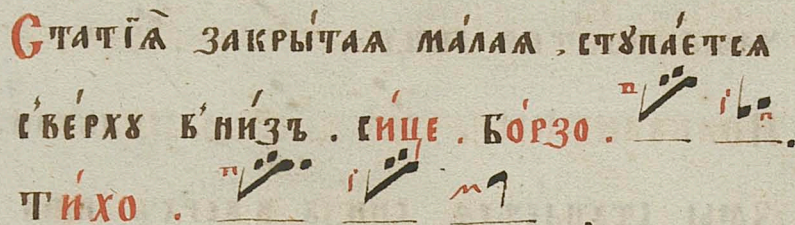 Статїѧ̀ закры́таѧ ма́лаѧ , ступа́етсѧ
с̾ве́рху в̾ ни́зъ . си́це . Бо́рзо .
ти́хо .